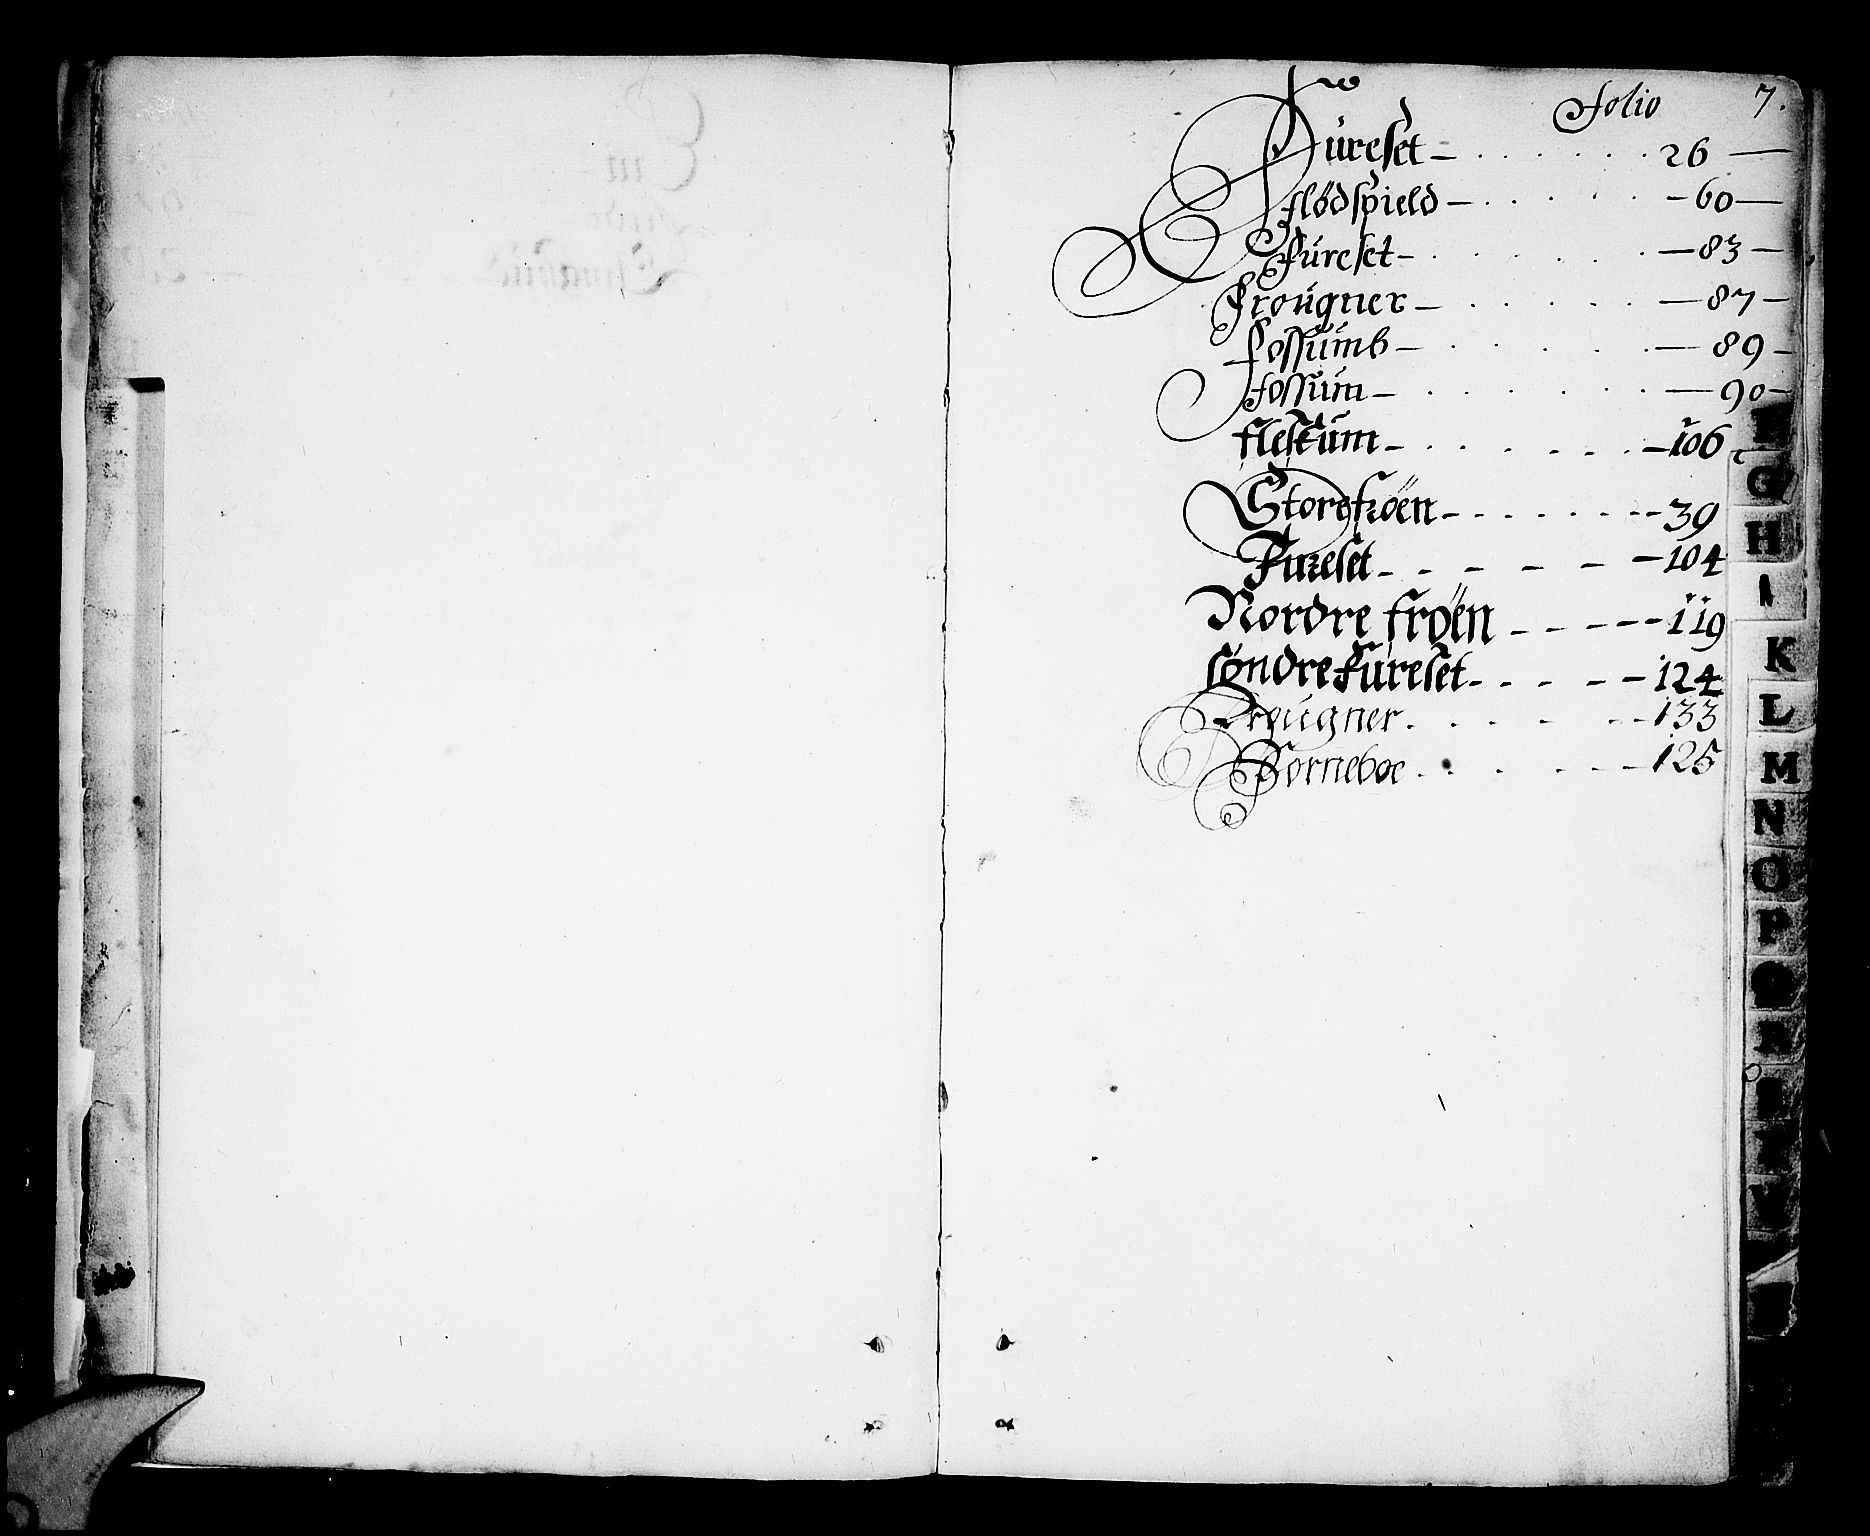 folio 7.
Fúreset - 26
flødspield - 60
fúreset - 83
froúgner - 87
fossúmb - 89
fossúm - 90
fleskúm - 106
Storefrøen - 39
Fureset - 104
Nordre frøen - 119
søndre fúreset - 124
Froúgner - 133
Forneboe - 125
G
H
I
K
L
M
N
O
P
Q
R